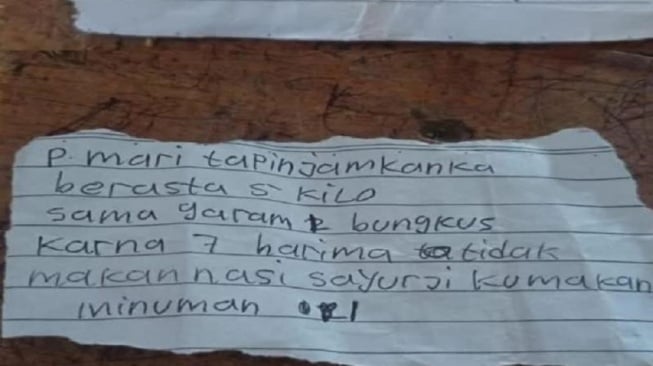 P. mari tapinjamkanka
berasta 5 kilo
sama garam 2 bungkus
karna 7 harima tidak
makan nasi sayurji kumakan
minuman